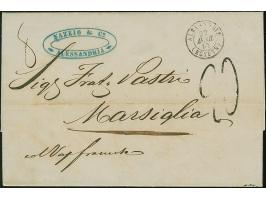 NAZZIO & Cº
ALESSANDRIA
ALEXANDRIE
(EGYPTE)
Sigri Frat. Pastri
Marsiglia
col Vap francese